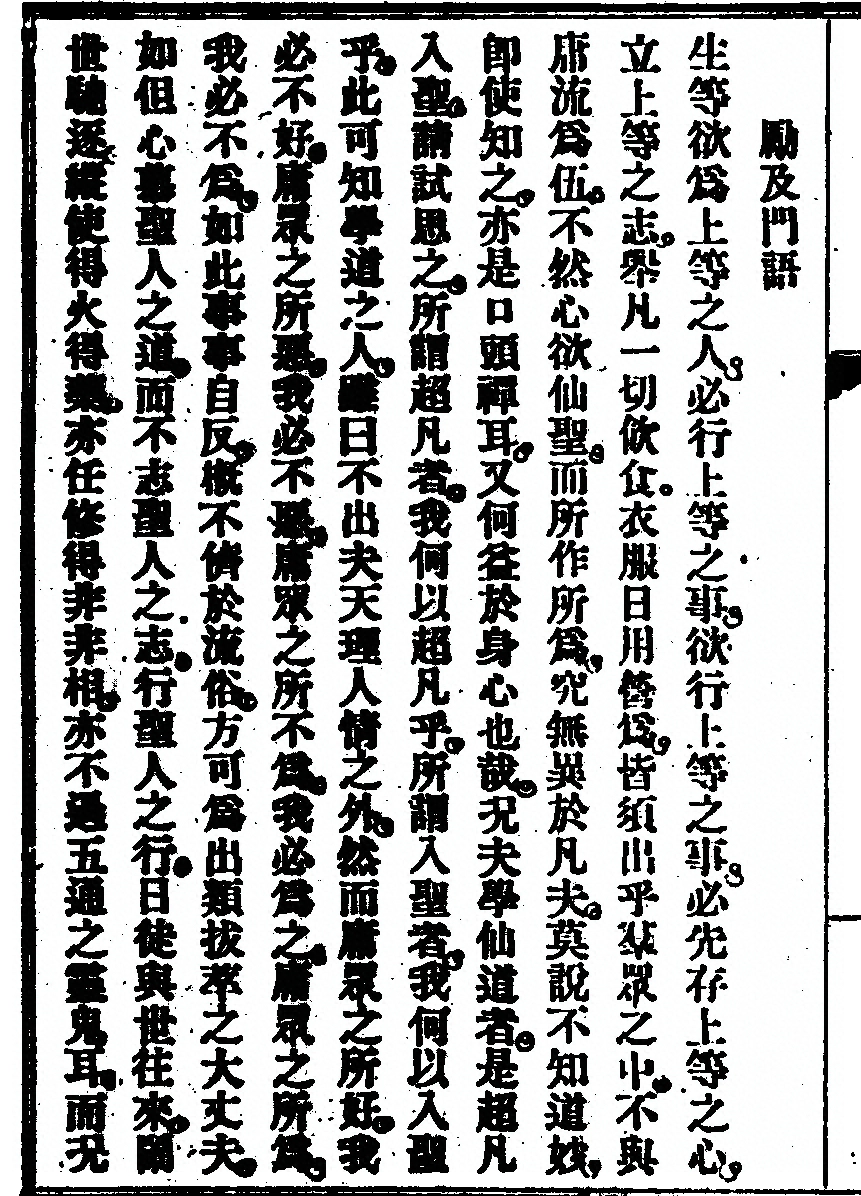 勵及門語
生等欲爲上等之人必行上等之事欲行上等之事必先存上等之心
立上等之志舉凡一切飲食衣服日用營爲皆須出乎羣眾之中不與
庸流爲伍不然心欲仙聖而所作所爲究無異於凡夫莫說不知道妙
卽使知之亦是口頭禪耳又何益於身心也哉况夫學仙道者是超凡
入聖請試思之所謂超凡者我何以超凡乎所謂入聖者我何以入聖
乎此可知學道之人雖曰不出夫天理人情之外然而庸眾之所好我
必不好庸眾之所惡我必不惡庸眾之所不爲我必爲之庸眾之所爲
我必不爲如此事事自反槪不儕於流俗方可爲出類拔萃之大丈夫
如但心慕聖人之道而不志聖人之志行聖人之行日徒與世往來鬭
世馳逐縱使得火得藥亦任修得非非相亦不過五通之靈鬼耳而况